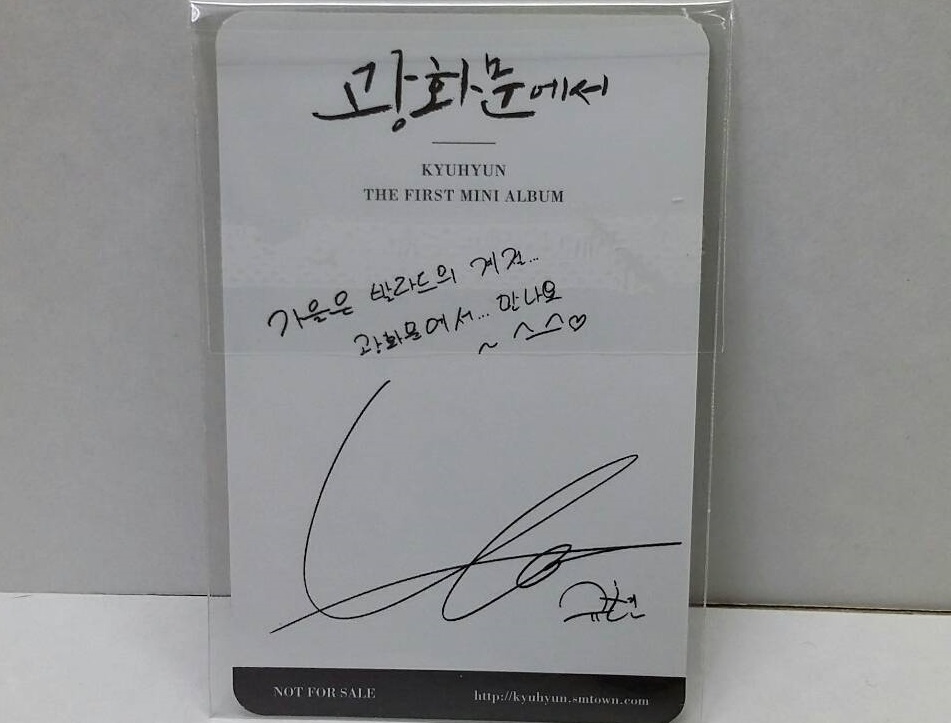 광화문에서
KYUHYUN
THE FIRST MINI ALBUM
가을은 발라드의 계절...
광화문에서... 만나요
~ ^^♡
규현
NOT FOR SALE
http://kyuhyun.smtown.com